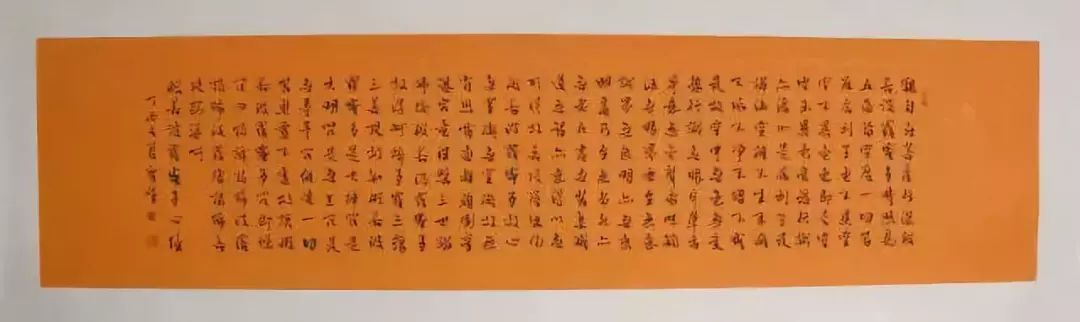 觀自在菩薩行深般
若波羅蜜多時照見
五蘊皆空度一切苦
厄舍利子色不異空
空不異色色即是空
空即是色受想行識
亦復如是舍利子是
諸法空相不生不滅
不垢不淨不增不減
是故空中無色無受
想行識無眼耳鼻舌
身意無色聲香味觸
法無眼界乃至無意
識界無無明亦無無
明盡乃至無老死亦
無老死盡無苦集滅
道無智亦無得以無
所得故菩提薩埵依
般若波羅蜜多故心
無罣礙無罣礙故無
有恐怖遠離顛倒夢
想究竟涅槃三世諸
佛依般若波羅蜜多
故得阿耨多羅三藐
三菩提故知般若波
羅蜜多是大神咒是
大明咒是無上咒是
無等等咒能除一切
苦真實不虛故說般
若波羅蜜多咒即說
咒曰揭諦揭諦波羅
揭諦波羅僧揭諦菩
提薩婆訶
般若波羅蜜多心經
丁酉